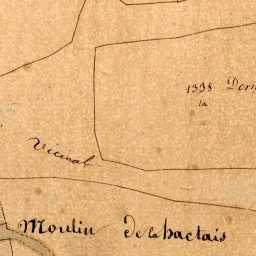 1398
la
Vicinal
Moulin de la hactais